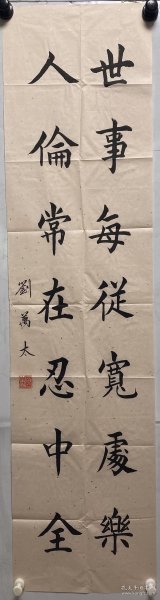 世事每從寬處樂
人倫常在忍中全
劉萬太